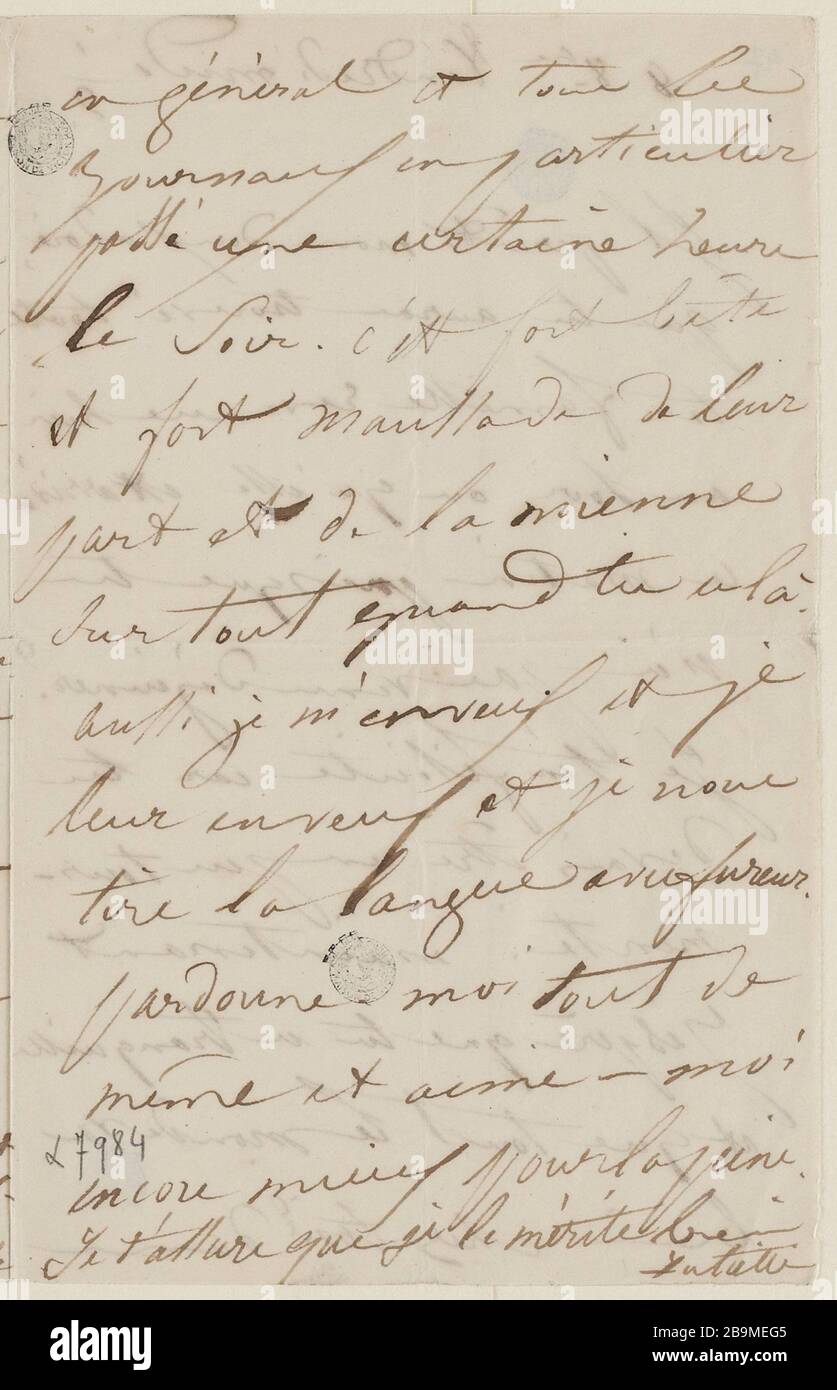 en général et tous les
journaux en particulier
passé une certaine heure
le soir. c'est fort bête
et fort maussade de leur
part et de la mienne
surtout quand tu es là.
aussi je m'en veux et je
leur en veux et je nous
tire la langue avec fureur.
pardonne moi tout de
même et aime-moi
α7984
encore mieux pour la peine.
Je t'assure que je le mérite bien
Juliette
alamy
Image ID: 2B9MEG5
www.alamy.com